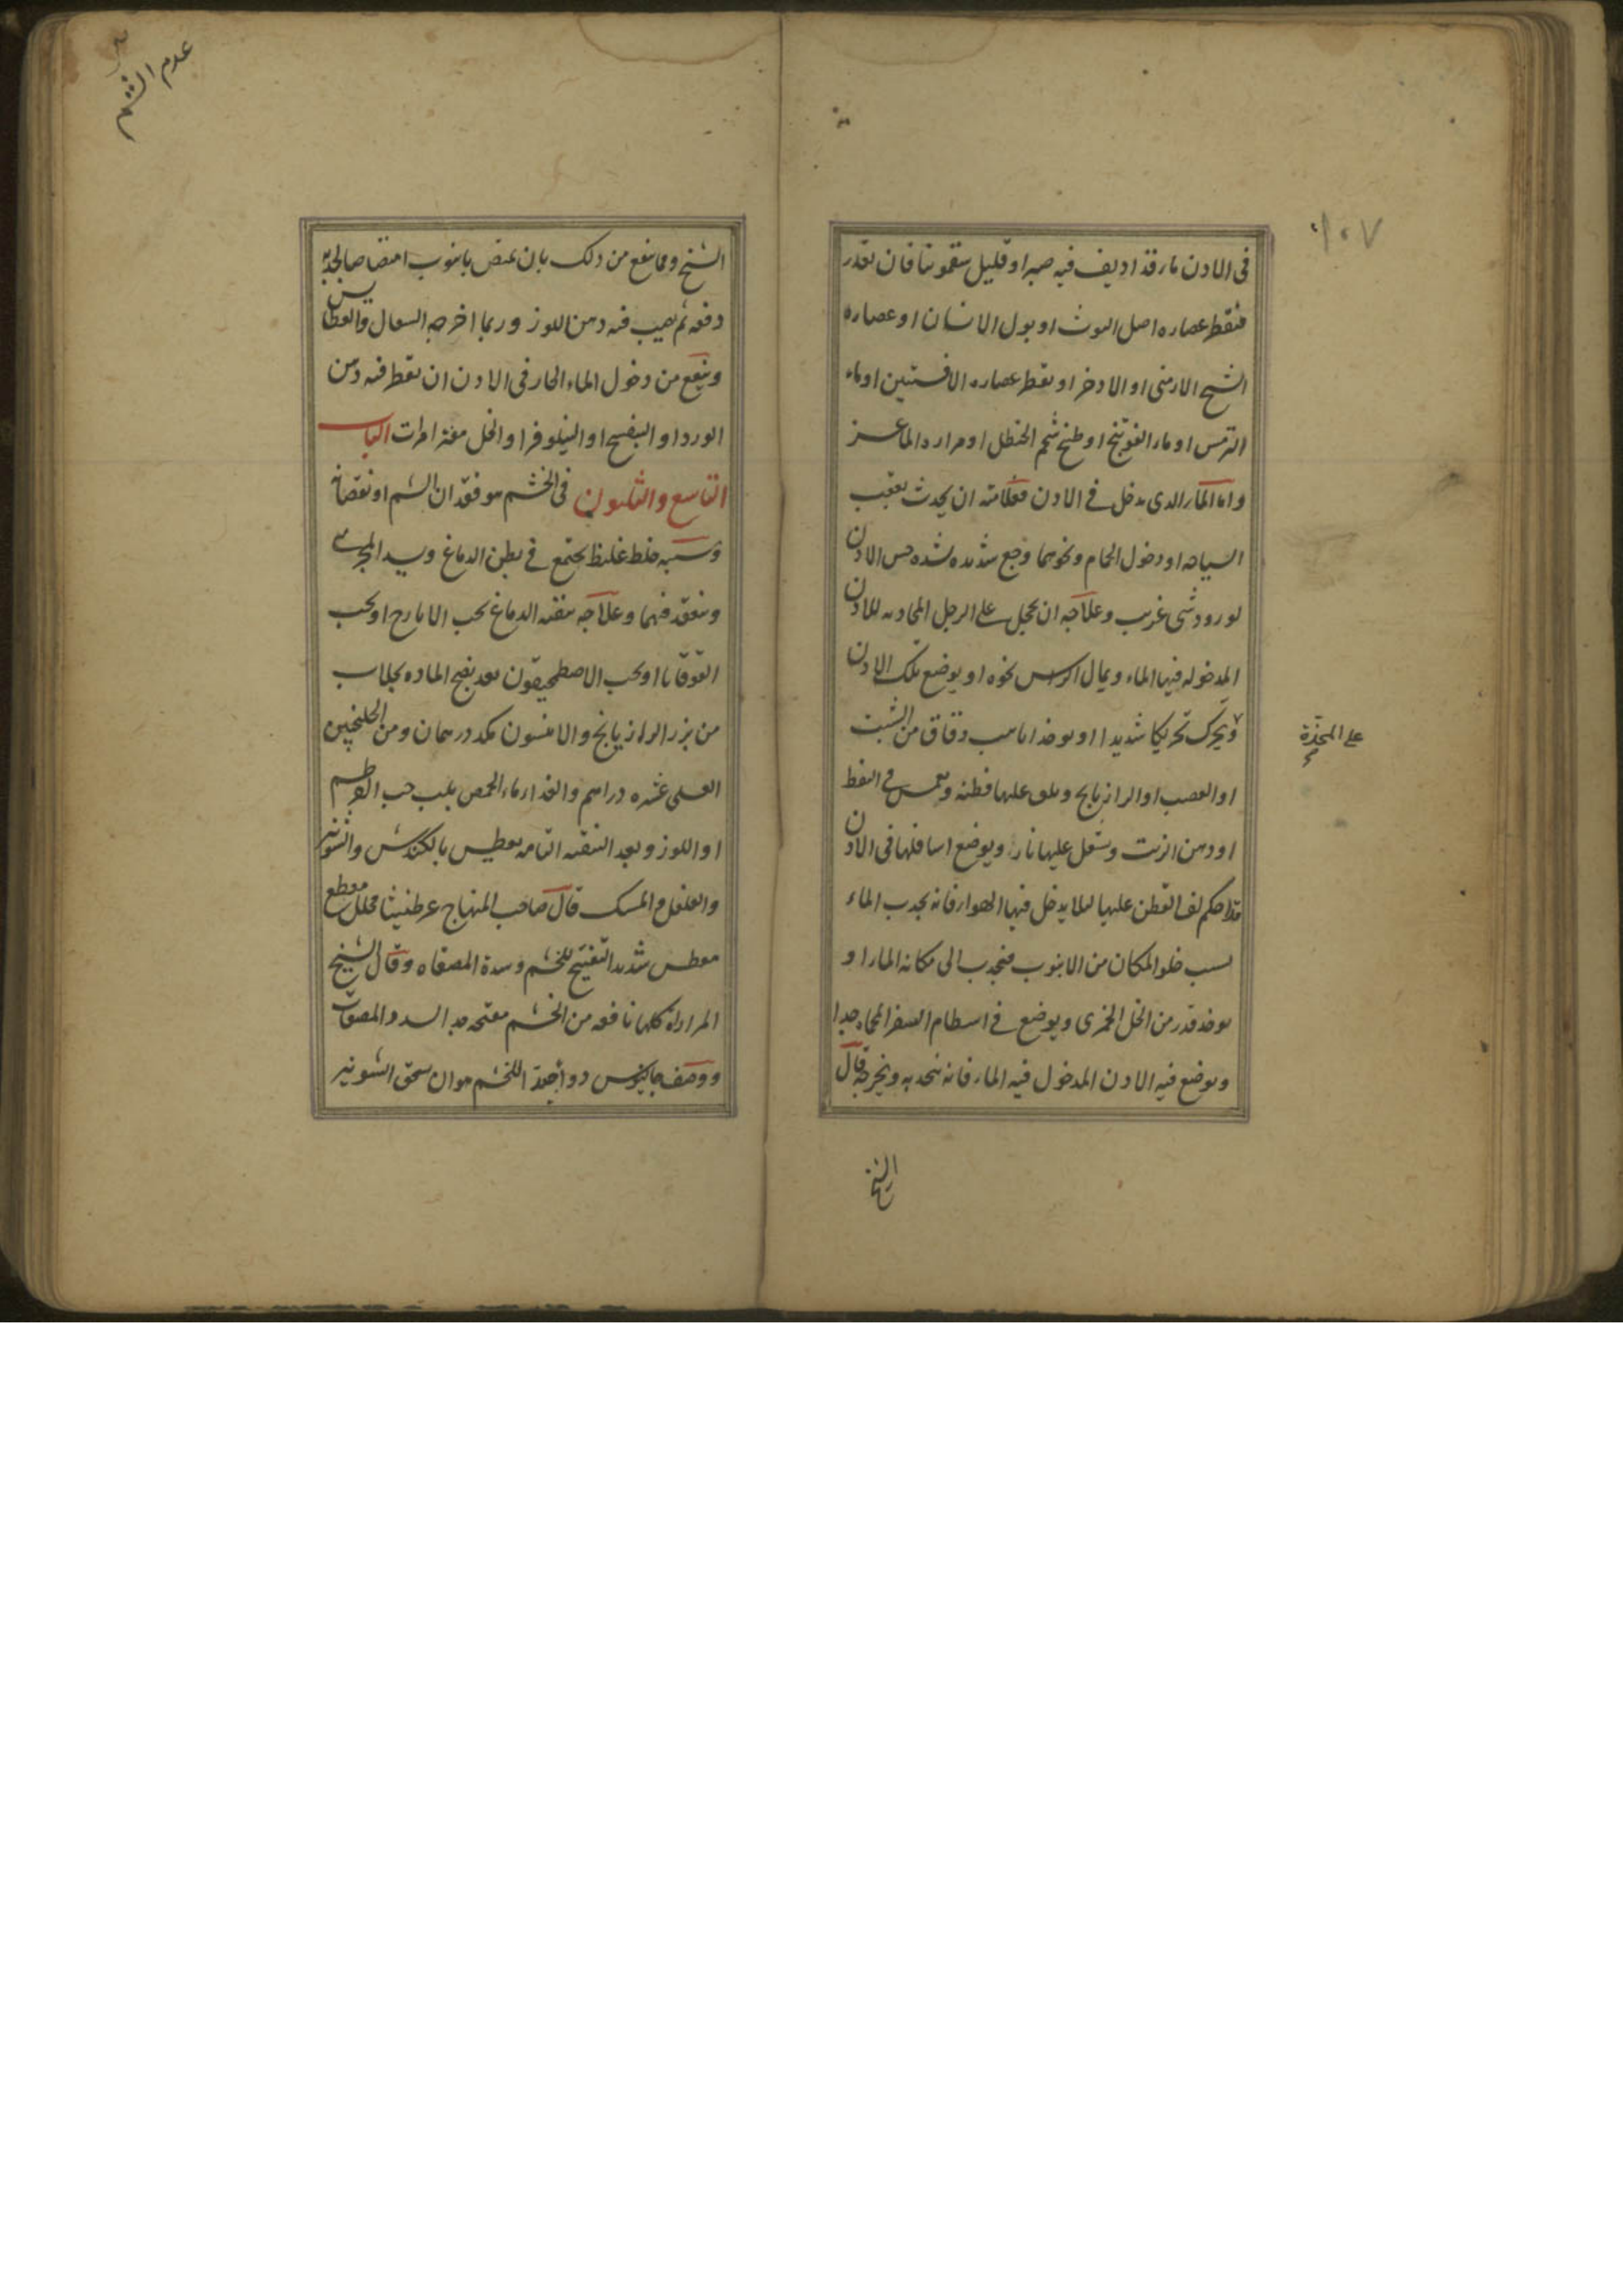 ١٠٧
فى الاذن ماء قد اديف فيه صبرا و قليل سقمونيا فان تعذر
فيقطر عصاره اصل التوث او بول الانسان او عصاره
الشيح الارمنى او الاذخر او يقطر عصاره الافسنتين او ماء
الترمس او ماء الفوتنج او طبخ شحم الحنظل او مراره الماعز
واما الماء الذى يدخل فى الاذن فعلامته ان يحدث بعقب
السباحه او دخول الحمام ونحوهما وجع شديد ه لشده حس الاذن
لورود شى غريب وعلاجه ان يحجل على الرجل المحاذيه للاذن
المدخوله فيها الماء ويمال الراس نحوه او يوضع تلك الاذن
ويحرك تحريكا شديدا او يوخذ انابيب دقاق من الشبت
على المخدة
او القصب او الرازيانج ويلف عليها قطنه ويغمس فى النفط
او دهن الزيت ويشعل عليها نار ويوضع اسافلها فى الاذن
قد احكم لف القطن عليها لئلا يدخل فيها الهواء فانه يجذب الماء
بسبب خلو المكان من الانبوب فيجذب الى مكانه الماء او
يوخذ قدر من الخل الخمرى ويوضع فى اسطام الصفر المحماه جدا
ويوضع فيه الاذن المدخول فيه الماء فانه يجذبه ويخرجه قال
الشيخ
عدم الشم
الشيخ ومما ينفع من ذلك بان يمتص بانبوب امتصاصا يجذبه
دفعه ثم يصب فيه دهن اللوز وربما اخرجه السعال والعطاس
وينفع من دخول الماء الحار فى الاذن ان يقطر فيه دهن
الورد او البنفسج او النيلوفر او الخل مفترا مرات الباب
التاسع والثلثون فى الخشم هو فقدان الشم او نقصانه
وسببه خلط غليظ يجتمع فى بطين الدماغ ويسد المجرى
وينعقد فيهما وعلاجه تنقيه الدماغ بحب الايارج او بحب
القوقايا او بحب الاصطمحيقون بعد نضج الماده بجلاب
من بزر الرازيانج والانيسون مكد درهمان ومن الجلنجبين
العسلى عشره دراهم والغذاء ماء الحمص بلب حب القرطم
او اللوز وبعد التنقيه التامه يعطس بالكندش والشونيز
والفلفل والمسك قال صاحب المنهاج عرطنيثا محلل مقطع
معطس شديد التفتيح للخشم وسدة المصفاه وقال الشيخ
المرارات كلها نافعه من الخشم مفتحه جدا لسدد المصفات
ووصف جالينوس دواء جيدا للخشم هو ان يسحق الشونيز